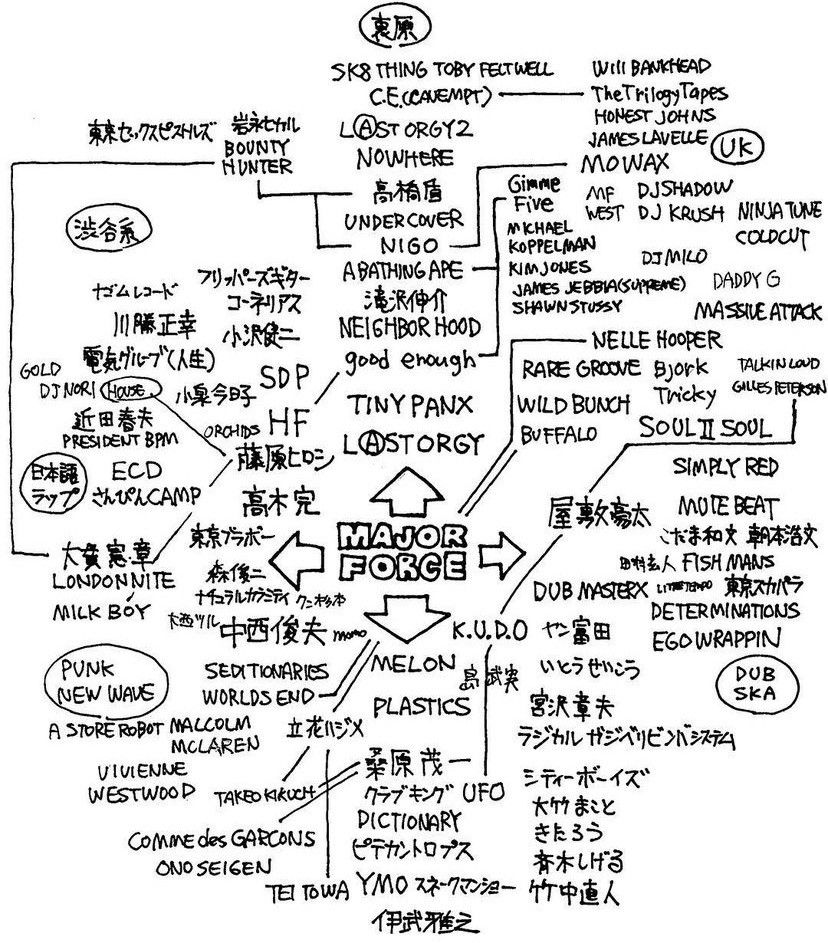 裏原
SK8 THING TOBY FELTWELL
C.E.(CAVEMPT)
Will BANKHEAD
TheTrilogyTapes
HONEST JOHNS
JAMES LAVELLE
UK
MO WAX
東京セックスピストルズ
岩永ヒカル
BOUNTY
HUNTER
LⒶST ORGY2
NOWHERE
高橋盾
UNDERCOVER
NIGO
A BATHING APE
滝沢伸介
NEIGHBORHOOD
good enough
Gimme
Five
MICHAEL
KOPPELMAN
KIM JONES
JAMES JEBBIA(SUPREME)
SHAWN STUSSY
MF
WEST
DJ SHADOW
DJ KRUSH
NINJA TUNE
COLDCUT
DJ MILO
DADDY G
MASSIVE ATTACK
NELLE HOOPER
RARE GROOVE
Bjork
TALKIN LOUD
WILD BUNCH
Tricky
GILLES PETERSON
BUFFALO
SOUL II SOUL
SIMPLY RED
渋谷系
ナゴムレコード
フリッパーズギター
コーネリアス
川勝正幸
小沢健二
電気グルーブ(人生)
GOLD
DJ NORI
HOUSE
小泉今日子
SDP
近田春夫
PRESIDENT BPM
ORCHIDS
HF
藤原ヒロシ
TINY PANX
LⒶST ORGY
日本語
ラップ
ECD
さんぴんCAMP
高木完
東京ブラボー
大貫憲章
LONDONNITE
MILK BOY
森俊二
ナチュラルカラミティ
クニ杉本
大西ツル
中西俊夫
momo
MAJOR
FORCE
屋敷豪太
MUTE BEAT
こだま和文
朝本浩文
田村玄人
FISHMANS
DUB MASTER X
LITTLE TEMPO
東京スカパラ
DETERMINATIONS
EGO WRAPPIN
DUB
SKA
K.U.D.O
ヤン富田
いとうせいこう
宮沢章夫
ラジカルガジベリビンバシステム
シティーボーイズ
大竹まこと
きたろう
斉木しげる
竹中直人
PUNK
NEW WAVE
SEDITIONARIES
WORLDS END
A STORE ROBOT
MALCOLM
MCLAREN
立花ハジメ
VIVIENNE
WESTWOOD
TAKEO KIKUCHI
COMME des GARCONS
ONO SEIGEN
TEI TOWA
MELON
島武実
PLASTICS
桑原茂一
クラブキング
UFO
DICTIONARY
ピテカントロプス
YMO
スネークマンショー
伊武雅之